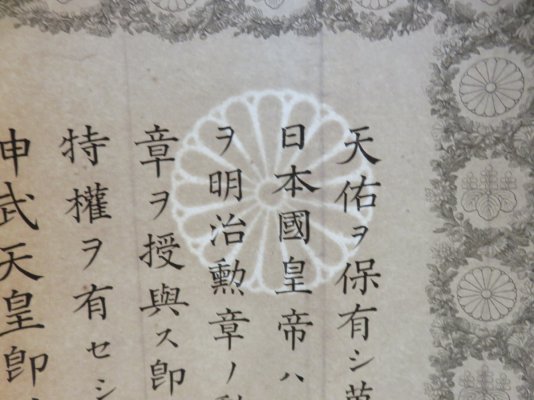 天佑ヲ保有シ萬
日本國皇帝ハ
ヲ明治勲章ノ
章ヲ授與ス卽
特權ヲ有セシ
神武天皇卽